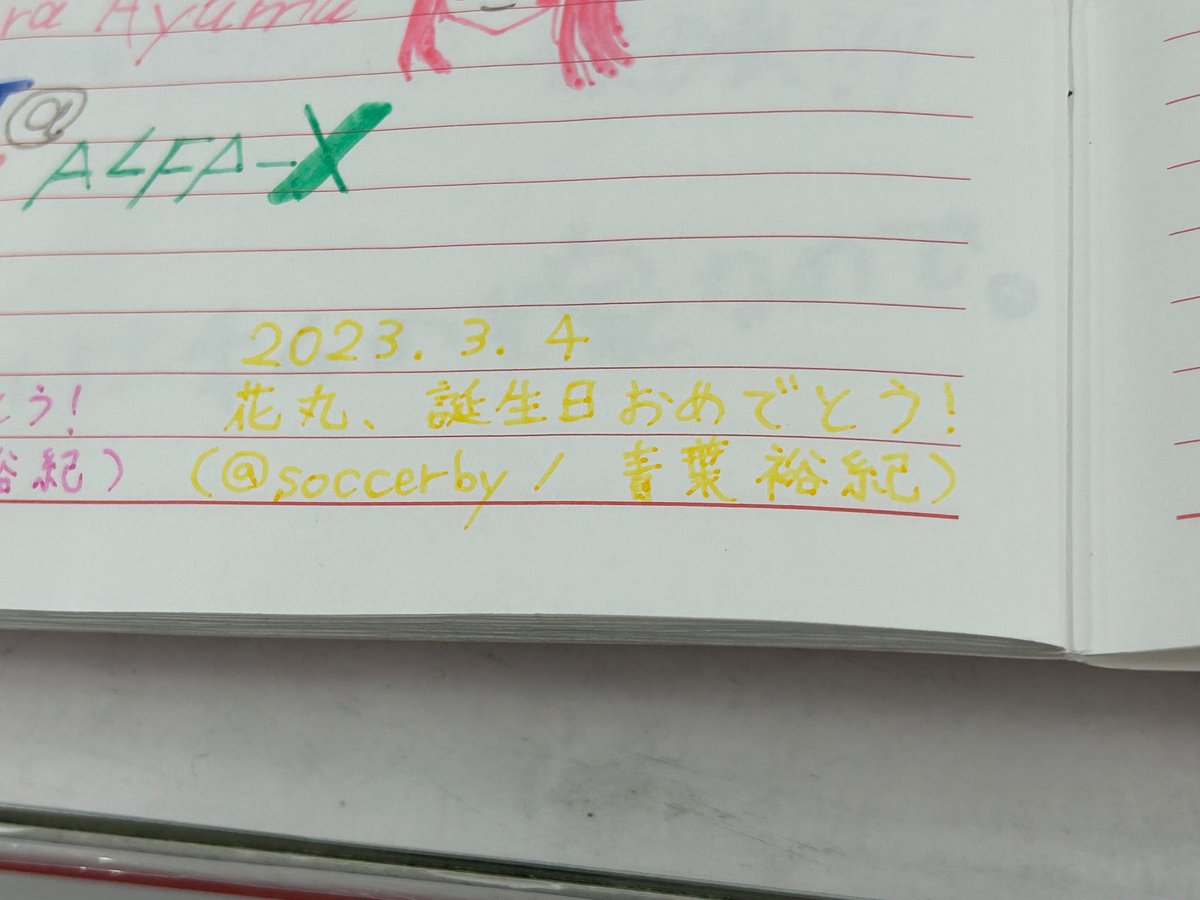 ra Ayumu
@
ALFA-X
2023. 3. 4
とう! 花丸、誕生日おめでとう!
裕紀) (@soccerby / 青葉 裕紀)